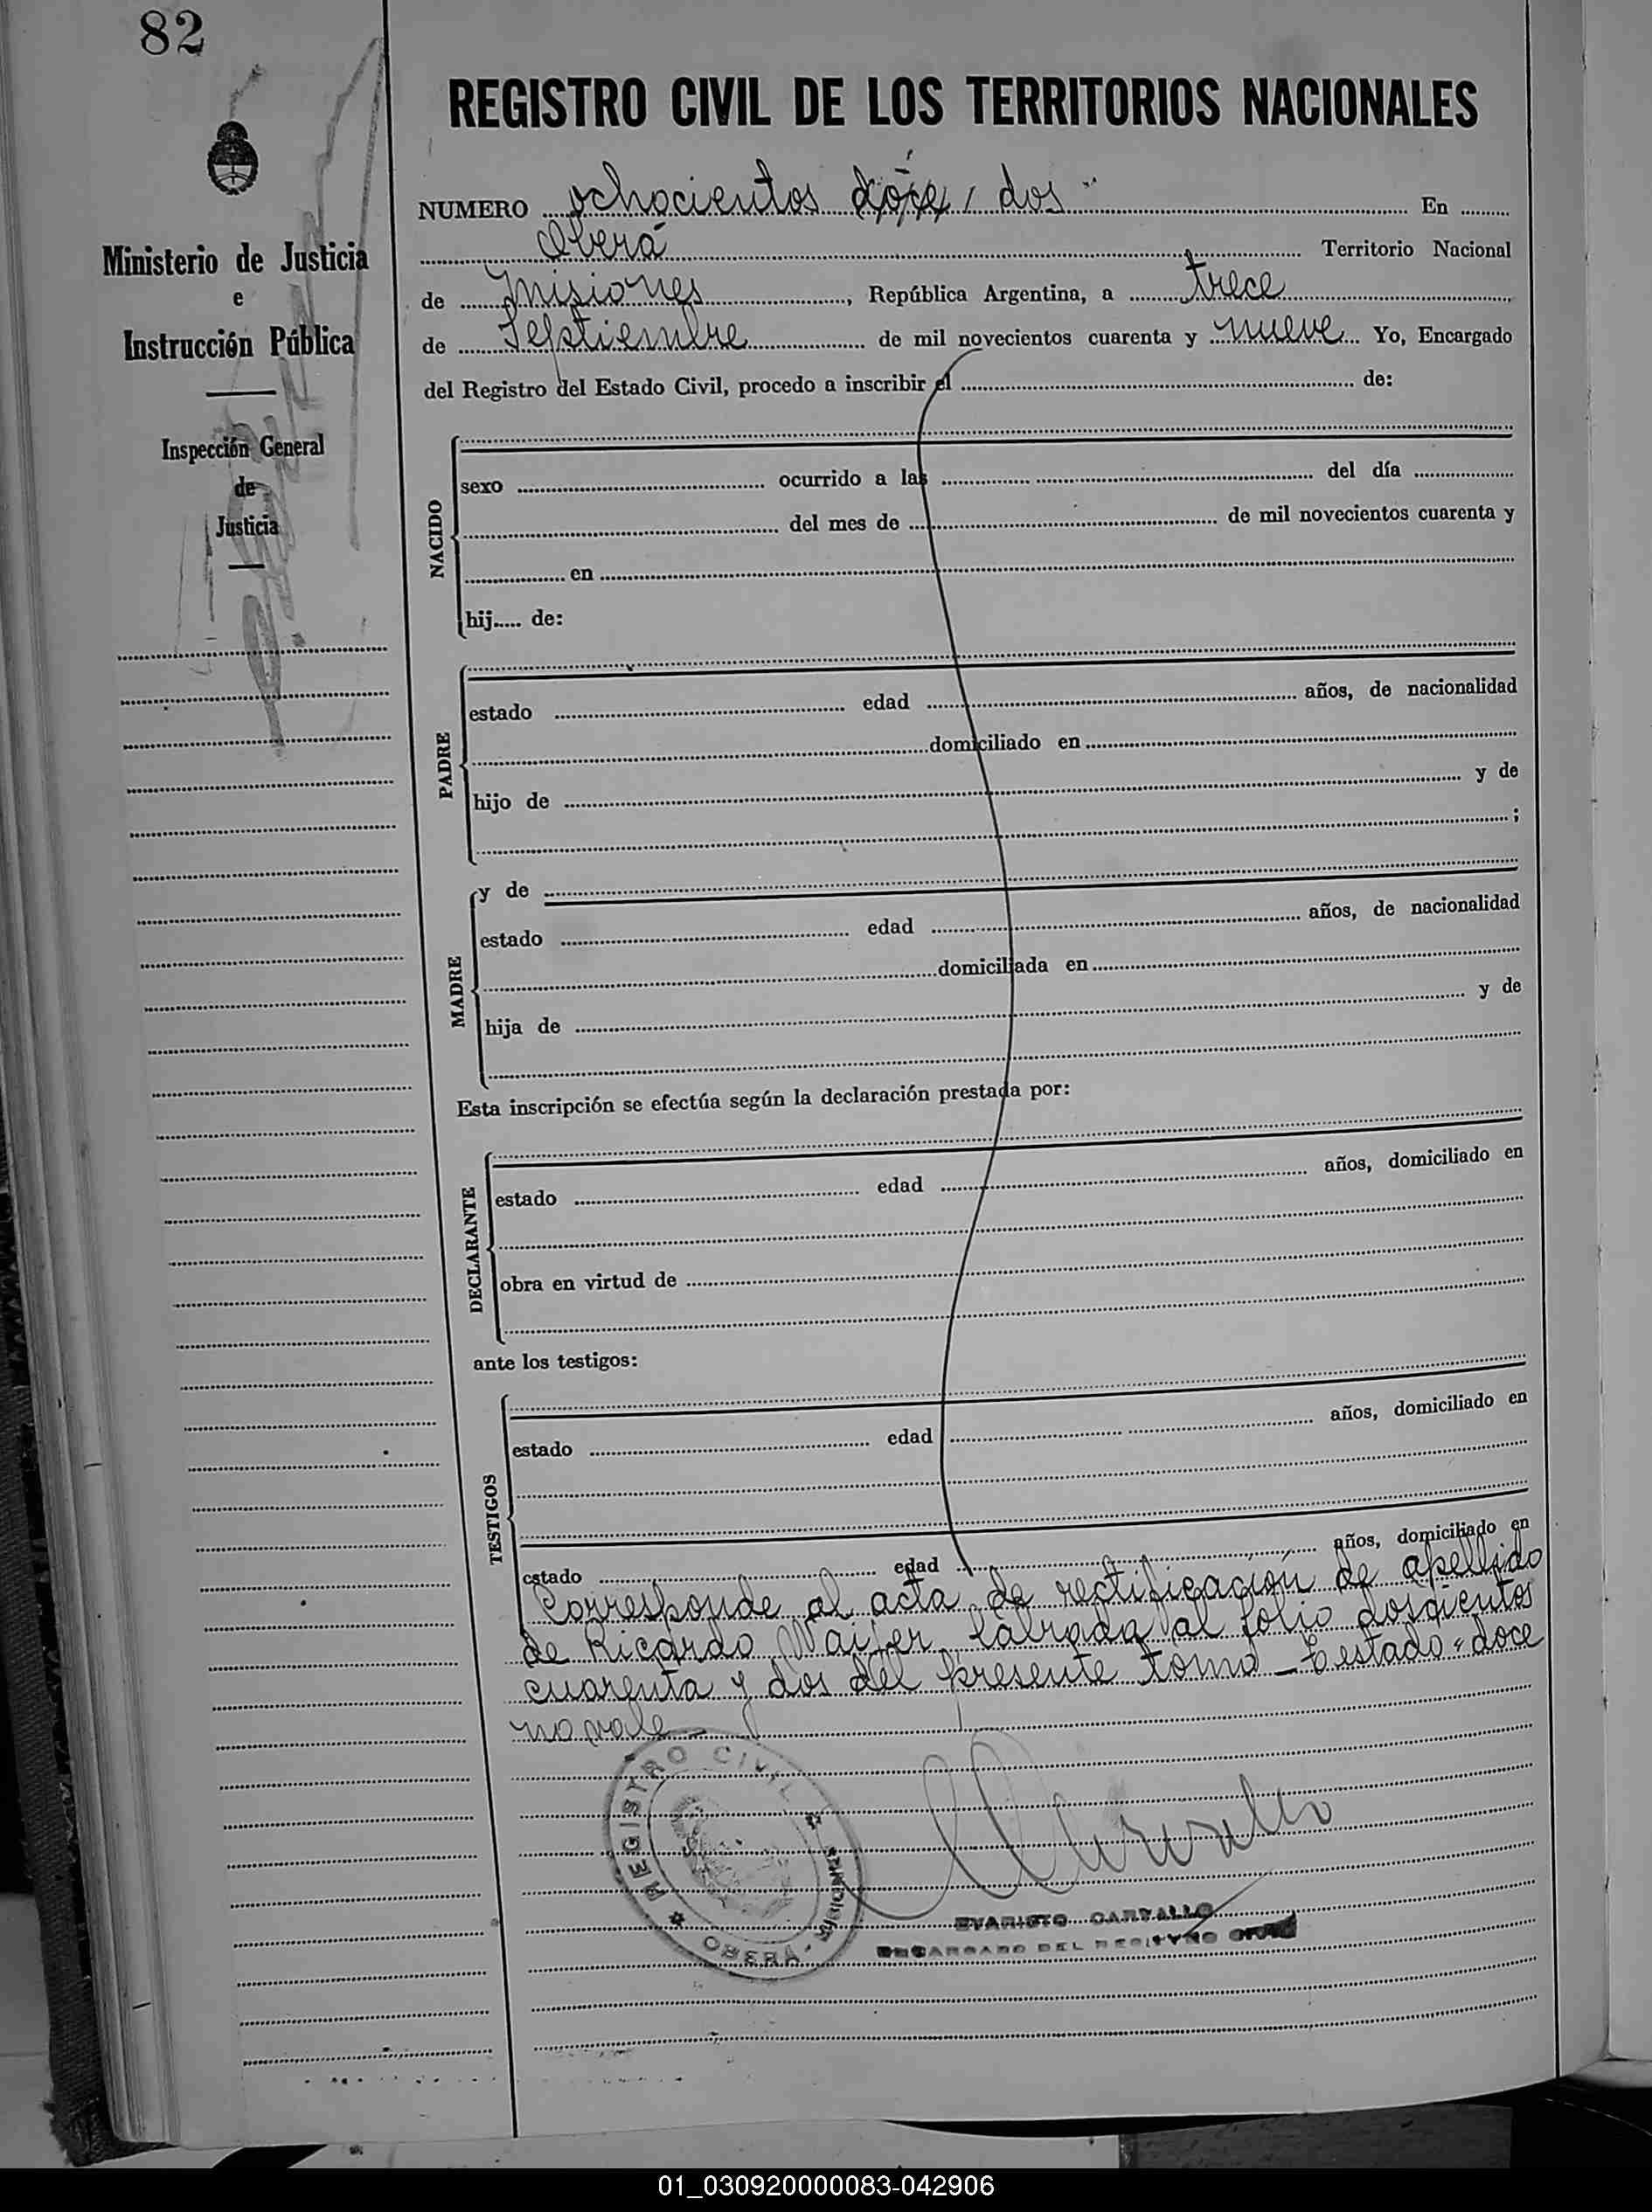 82
REGISTRO CIVIL DE LOS TERRITORIOS NACIONALES
Ministerio de Justicia
e
Instrucción Pública
Inspección General
de
Justicia
NUMERO ochocientos doce, dos En
Oberá Territorio Nacional
de Misiones, República Argentina, a trece
de Septiembre de mil novecientos cuarenta y nueve Yo, Encargado
del Registro del Estado Civil, procedo a inscribir el de:
NACIDO
sexo ocurrido a las del día
del mes de de mil novecientos cuarenta y
en
hij..... de:
PADRE
estado edad años, de nacionalidad
domiciliado en
hijo de y de
;
MADRE
y de
estado edad años, de nacionalidad
domiciliada en
hija de y de
Esta inscripción se efectúa según la declaración prestada por:
DECLARANTE
estado edad años, domiciliado en
obra en virtud de
ante los testigos:
TESTIGOS
estado edad años, domiciliado en
estado edad años, domiciliado en
Corresponde al acta de rectificación de apellido
de Ricardo labrada al folio doscientos
cuarenta y dos del presente tomo - Testado "doce
no vale -
REGISTRO CIVIL
OBERA - MISIONES
EVARISTO CARVALLO
ENCARGADO DEL REGISTRO CIVIL
01_030920000083-042906